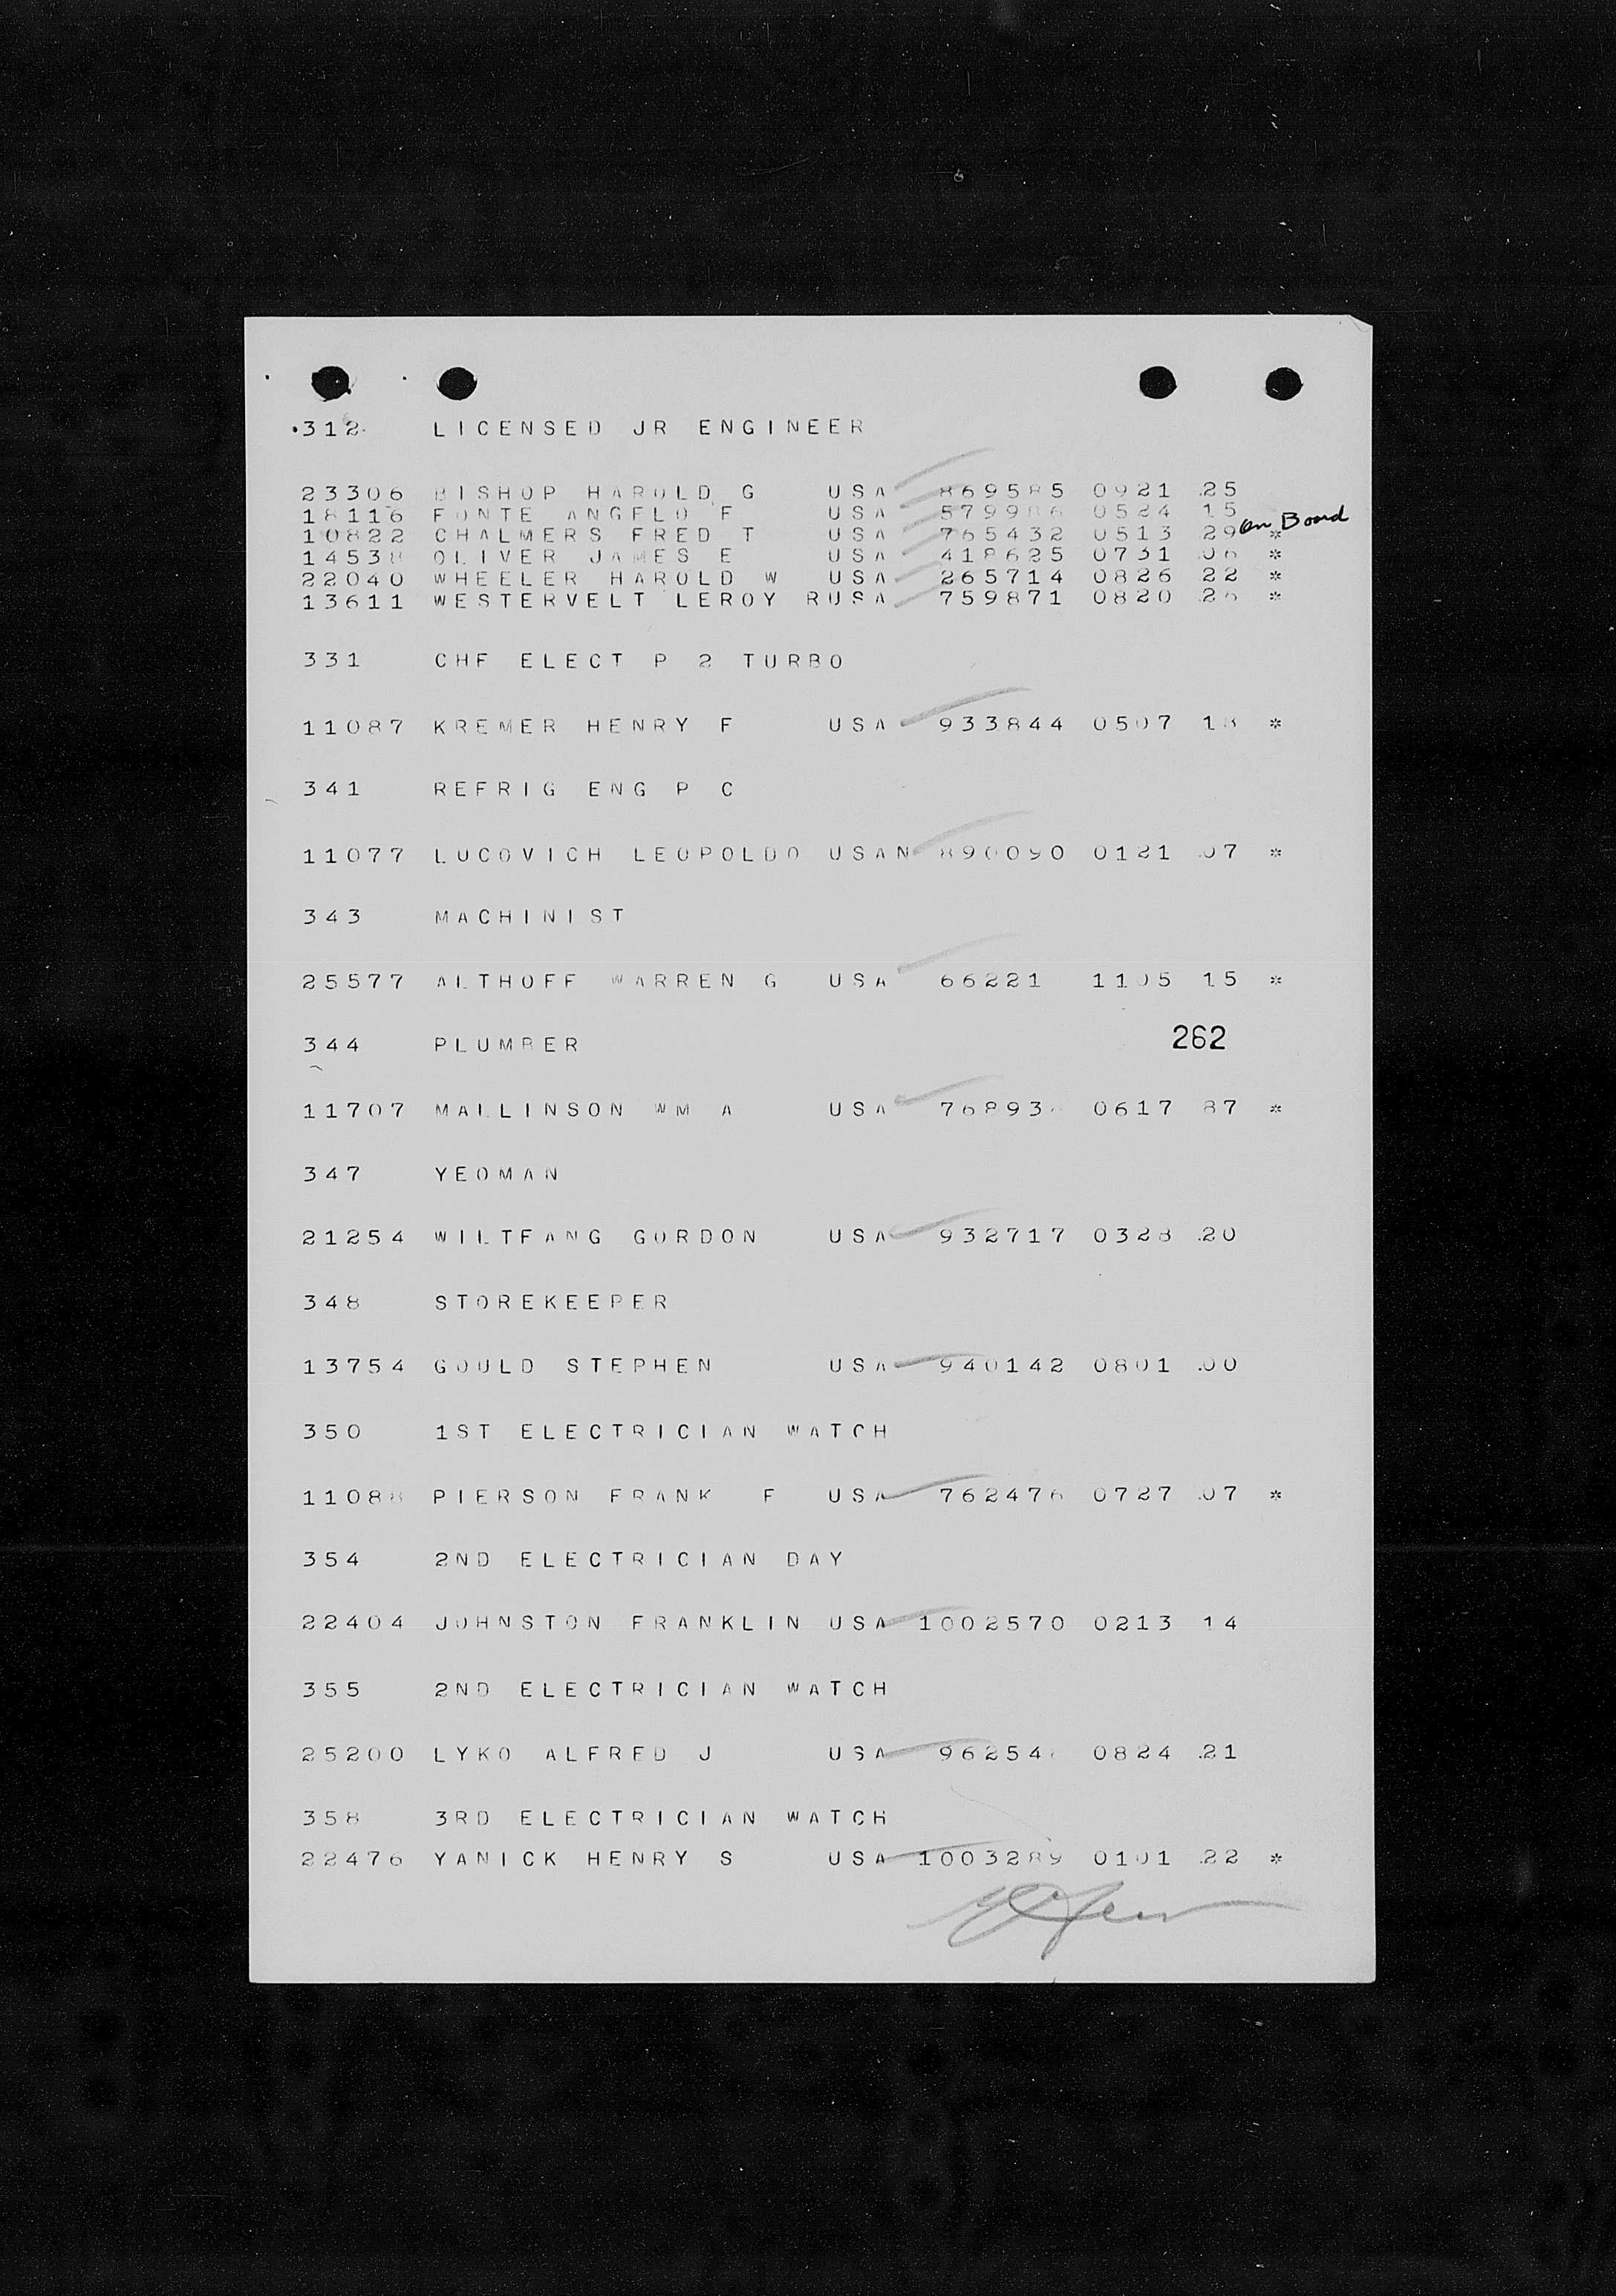 312 LICENSED JR ENGINEER
23306 BISHOP HAROLD G USA 869585 0921 25
18116 FONTE ANGELO F USA 579986 0524 15
On Board
10822 CHALMERS FRED T USA 765432 0513 29 *
14538 OLIVER JAMES E USA 418625 0731 06 *
22040 WHEELER HAROLD W USA 265714 0826 22 *
13611 WESTERVELT LEROY RUSA 759871 0820 26 *
331 CHF ELECT P 2 TURBO
11087 KREMER HENRY F USA 933844 0507 18 *
341 REFRIG ENG P C
11077 LUCOVICH LEOPOLDO USAN 890090 0121 07 *
343 MACHINIST
25577 ALTHOFF WARREN G USA 66221 1105 15 *
344 PLUMBER
262
11707 MALLINSON WM A USA 0617 87 *
347 YEOMAN
21254 WILTFANG GORDON USA 932717 0328 20
348 STOREKEEPER
13754 GOULD STEPHEN USA 940142 0801 00
350 1ST ELECTRICIAN WATCH
11088 PIERSON FRANK F USA 762476 0727 07 *
354 2ND ELECTRICIAN DAY
22404 JOHNSTON FRANKLIN USA 1002570 0213 14
355 2ND ELECTRICIAN WATCH
25200 LYKO ALFRED J USA 0824 21
358 3RD ELECTRICIAN WATCH
22476 YANICK HENRY S USA 1003289 0101 22 *